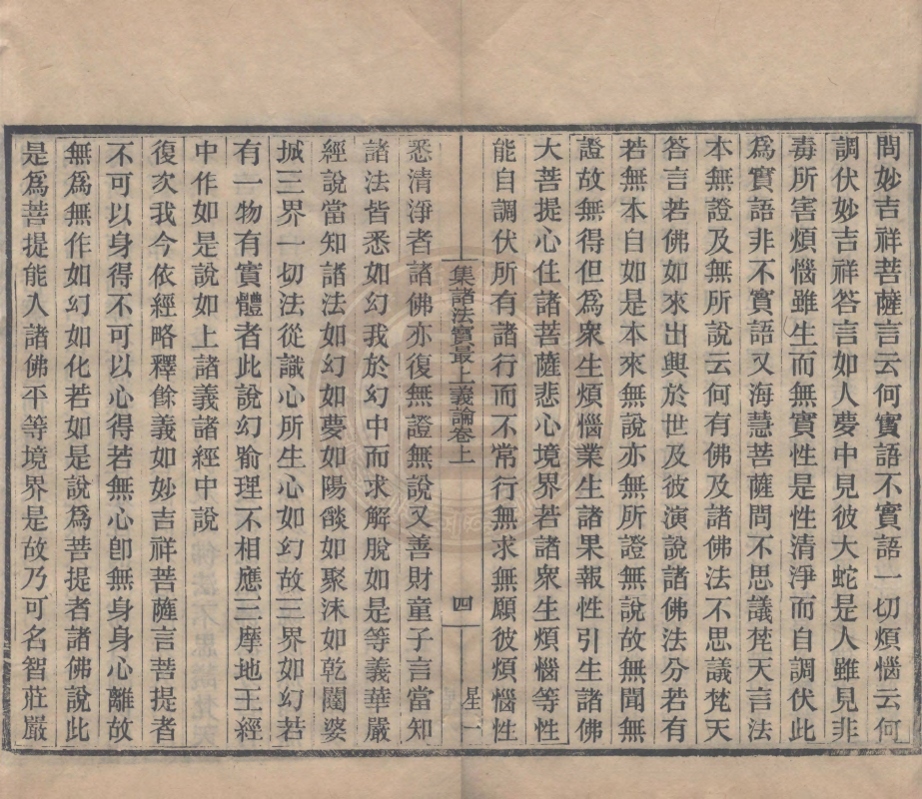 問妙吉祥菩薩言云何實語不實語一切煩惱云何
調伏妙吉祥答言如人夢中見彼大蛇是人雖見非
毒所害煩惱雖生而無實性是性清淨而自調伏此
為實語非不實語又海慧菩薩問不思議梵天言法
本無證及無所說云何有佛及諸佛法不思議梵天
答言若佛如來出興於世及彼演說諸佛法分若有
若無本自如是本來無說亦無所證無說故無聞無
證故無得但為衆生煩惱業生諸果報性引生諸佛
大菩提心住諸菩薩悲心境界若諸衆生煩惱等性
能自調伏所有諸行而不常行無求無願彼煩惱性
集諸法寶最上義論卷上 四 星一
悉清淨者諸佛亦復無證無說又善財童子言當知
諸法皆悉如幻我於幻中而求解脫如是等義華嚴
經說當知諸法如幻如夢如陽燄如聚沫如乾闥婆
城三界一切法從識心所生心如幻故三界如幻若
有一物有實體者此說幻喻理不相應三摩地王經
中作如是說如上諸義諸經中說
復次我今依經略釋餘義如妙吉祥菩薩言菩提者
不可以身得不可以心得若無心卽無身身心離故
無為無作如幻如化若如是說為菩提者諸佛說此
是為菩提能入諸佛平等境界是故乃可名智莊嚴